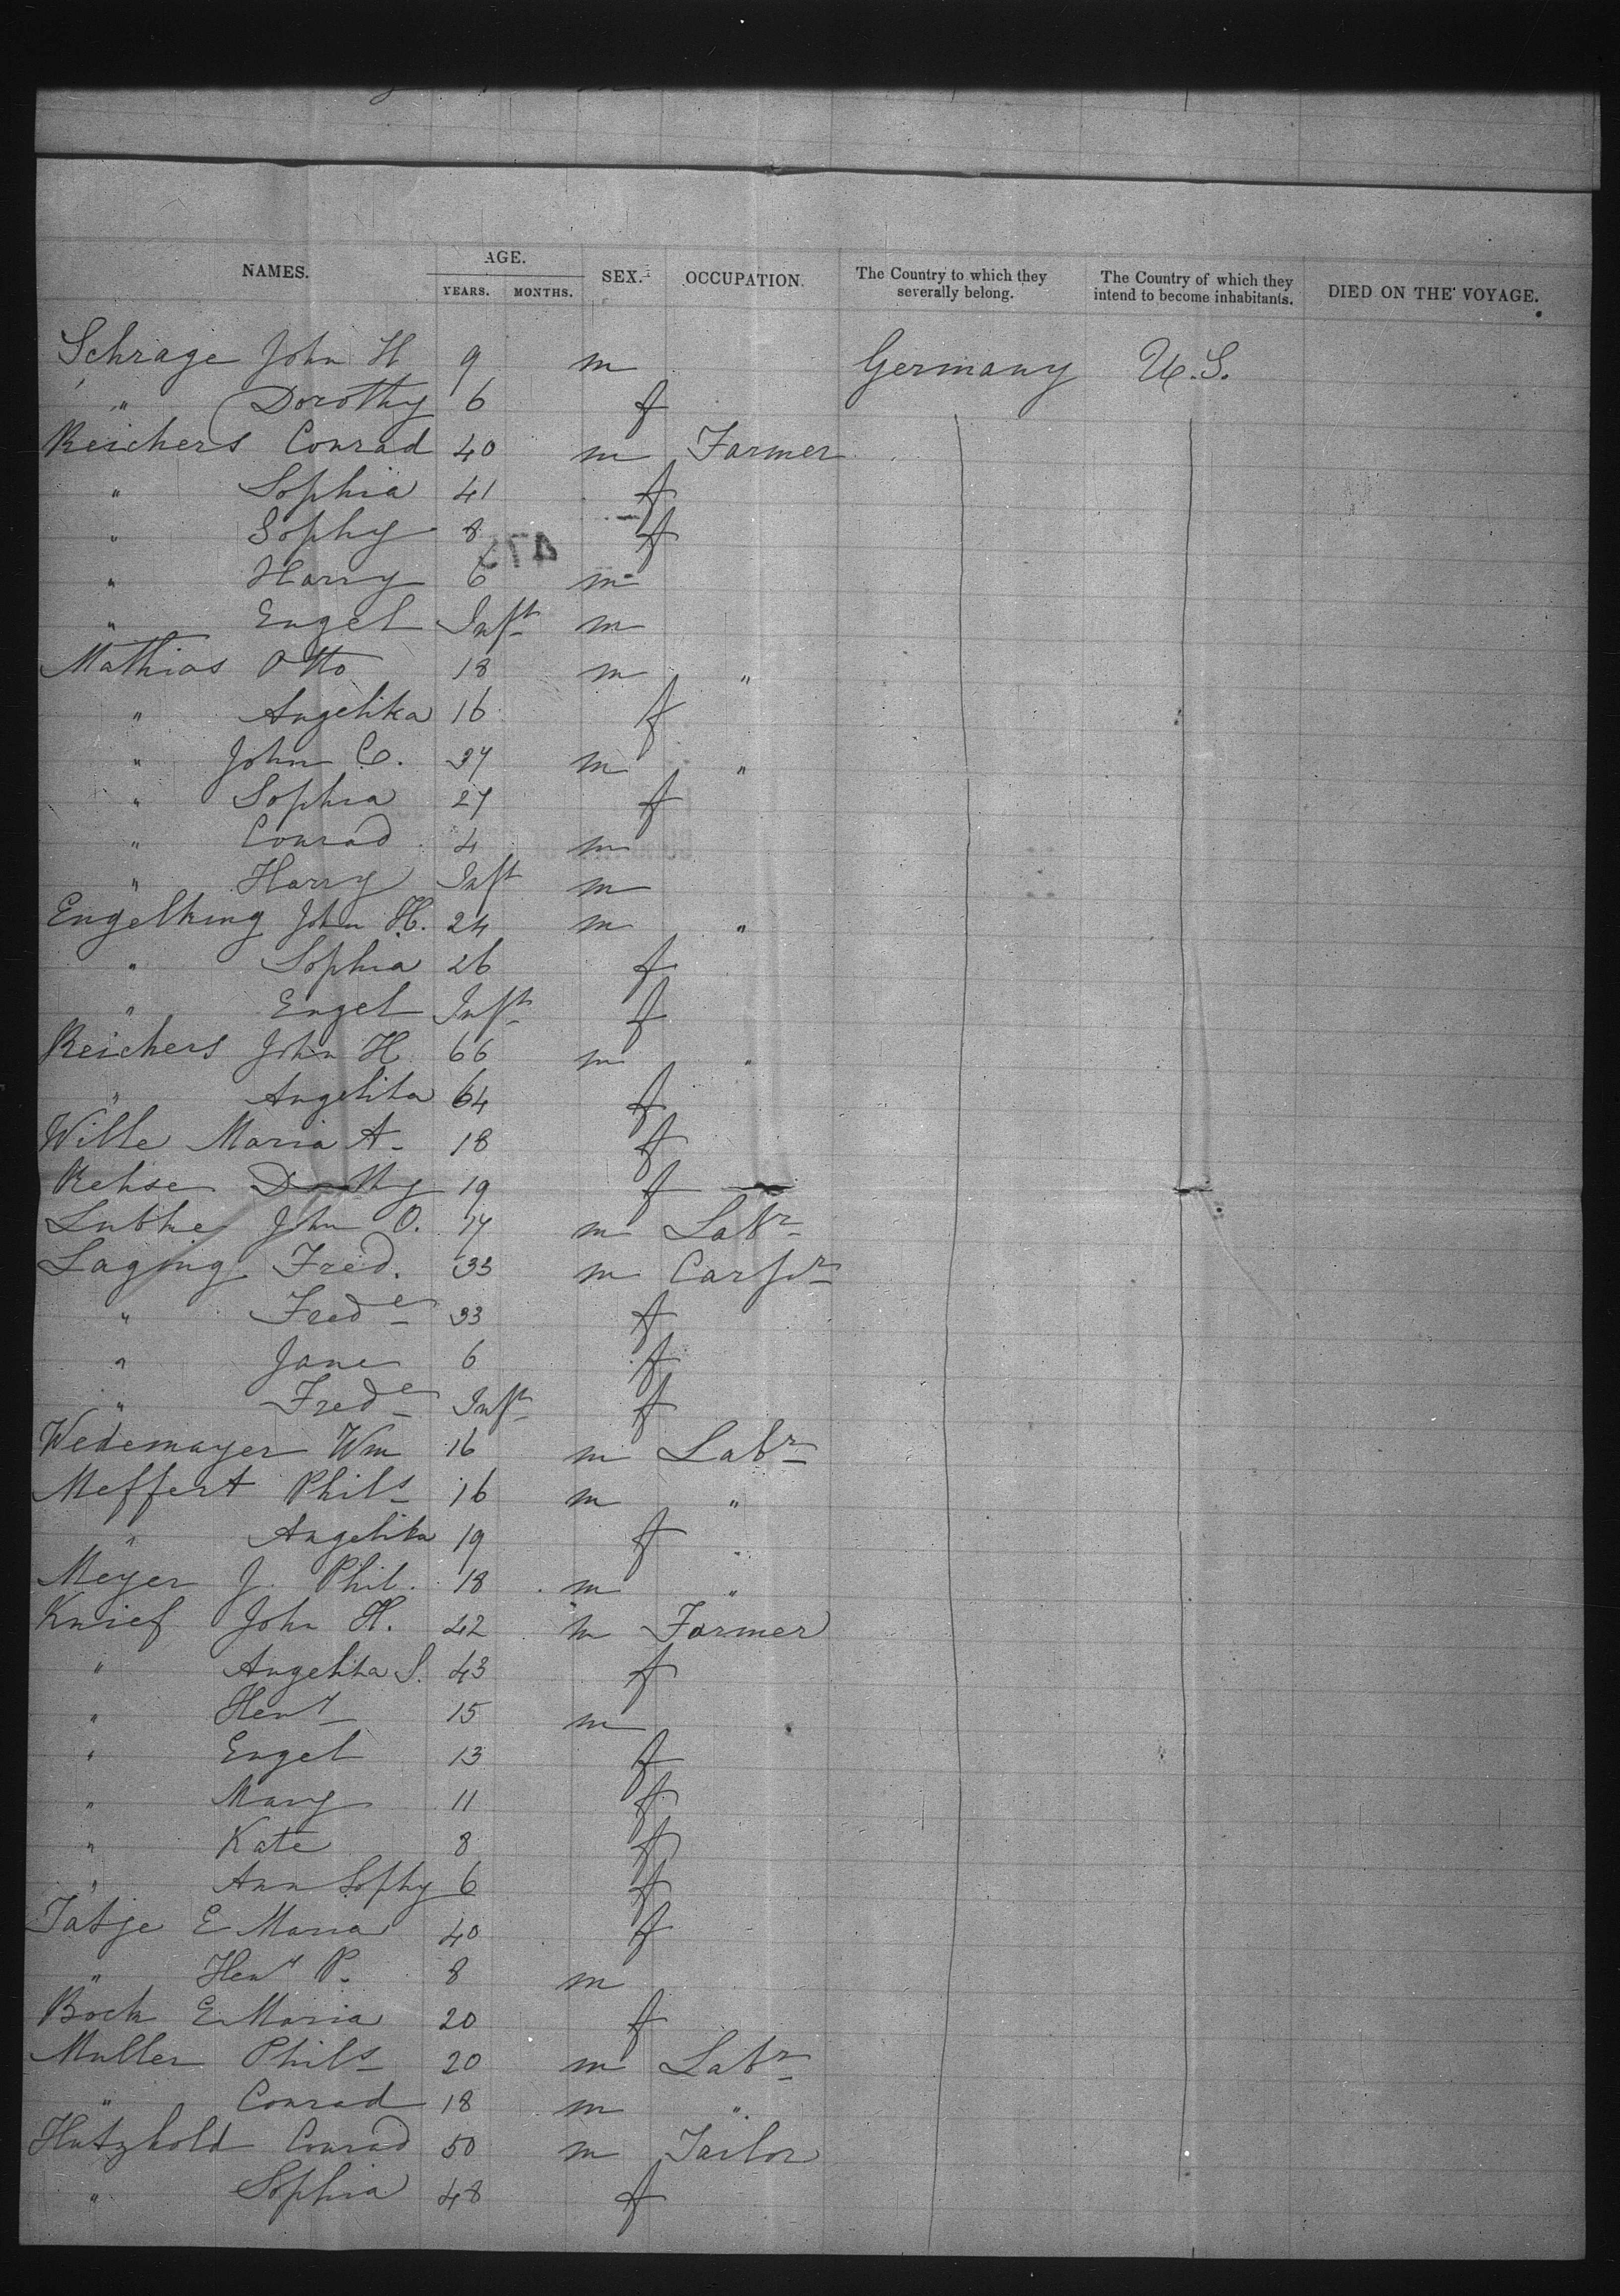 NAMES. AGE. SEX. OCCUPATION. The Country to which they severally belong. The Country of which they intend to become inhabitants. DIED ON THE VOYAGE.
YEARS. MONTHS.
Schrage John H 9 m Germany U.S.
" Dorothy 6 f
Reichers Conrad 40 m Farmer
" Sophia 41 f
" Sophy 8 f
" Harry 6 m
" Engel Inft m
Mathias Otto 18 m "
" Angelika 16 f
" John C. 37 m "
" Sophia 27 f
" Conrad 4 m
" Harry Inft m
Engelking John H. 24 m "
" Sophia 26 f
" Engel Inft f
Reichers John H 66 m "
" Angelika 64 f
Wille Maria A. 18 f
Rehse Dorothy 19 f
Lubke John O. 17 m Labr
Laging Fred. 33 m Carptr
" Frede 33 f
" Jane 6 f
" Frede Inft f
Wedemayer Wm 16 m Labr
Meffert Phils 16 m "
" Angelika 19 f
Meyer J. Phil. 18 m "
Knief John H. 42 m Farmer
" Angelika S. 43 f
" Heny 15 m
" Engel 13 f
" Mary 11 f
" Kate 8 f
" Ann Sophy 6 f
Tatje E Maria 40 f
" Heny P. 8 m
Bock E Maria 20 f
Muller Phils 20 m Labr
" Conrad 18 m "
Hutzhold Conrad 50 m Tailor
" Sophia 48 f